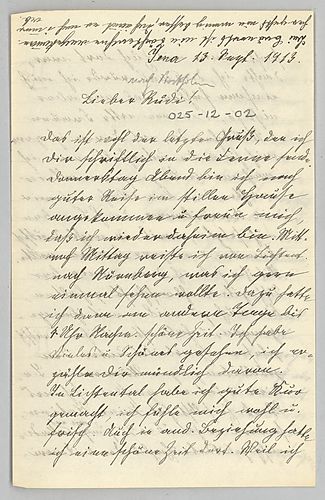 Jena 13. Sept. 1913.
Lieber Rudi!
025-12-02
Das ist wohl der letzte Gruß, den ich
Dir schriftlich in die Ferne sende.
Donnerstag Abend bin ich nach
guter Reise im stillen Hause
angekommen u. freue mich,
daß ich wieder daheim bin. Mitt.
nach Mittag reiste ich von Lichtent.
nach Nürnberg, was ich gern
einmal sehen wollte. Dazu hatte
ich dann am andern Tage bis
4 Uhr Nachm. schöne Zeit. Ich habe
Vieles u. Schönes gesehen, ich er-
zähle Dir mündlich davon.
In Lichtental habe ich gute Kur
gemacht, ich fühle mich wohl u.
frisch. Auch in and. Beziehung hatte
ich eine schöne Zeit dort. Weil ich